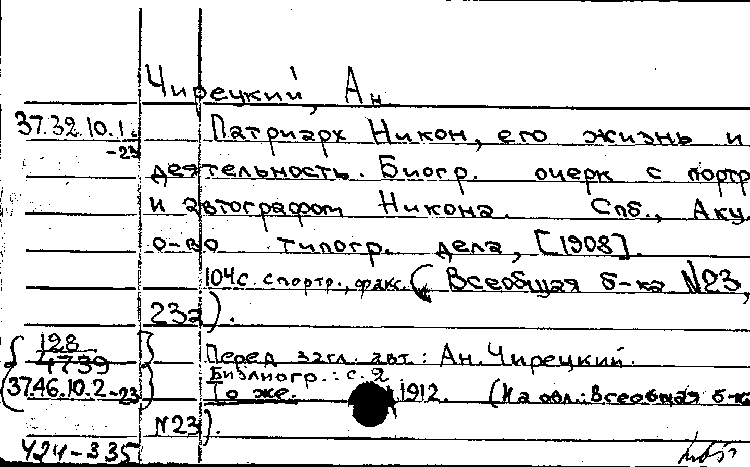 Чирецкий, Ан
37.32.10.1.-23 Патриарх Никон, его жизнь и
деятельность. Биогр. очерк с портр
и автографом Никона. Спб., Акц.
о-во типогр. дела, [1908].
104 с. с портр., факс. (Всеобщая б-ка №23,
23а).
128/4739 Перед загл. авт.: Ан. Чирецкий.
Библиогр.: с. 2
(37.46.10.2-23) То же. 1912. (На обл.: Всеобщая б-ка
№23).
424-335